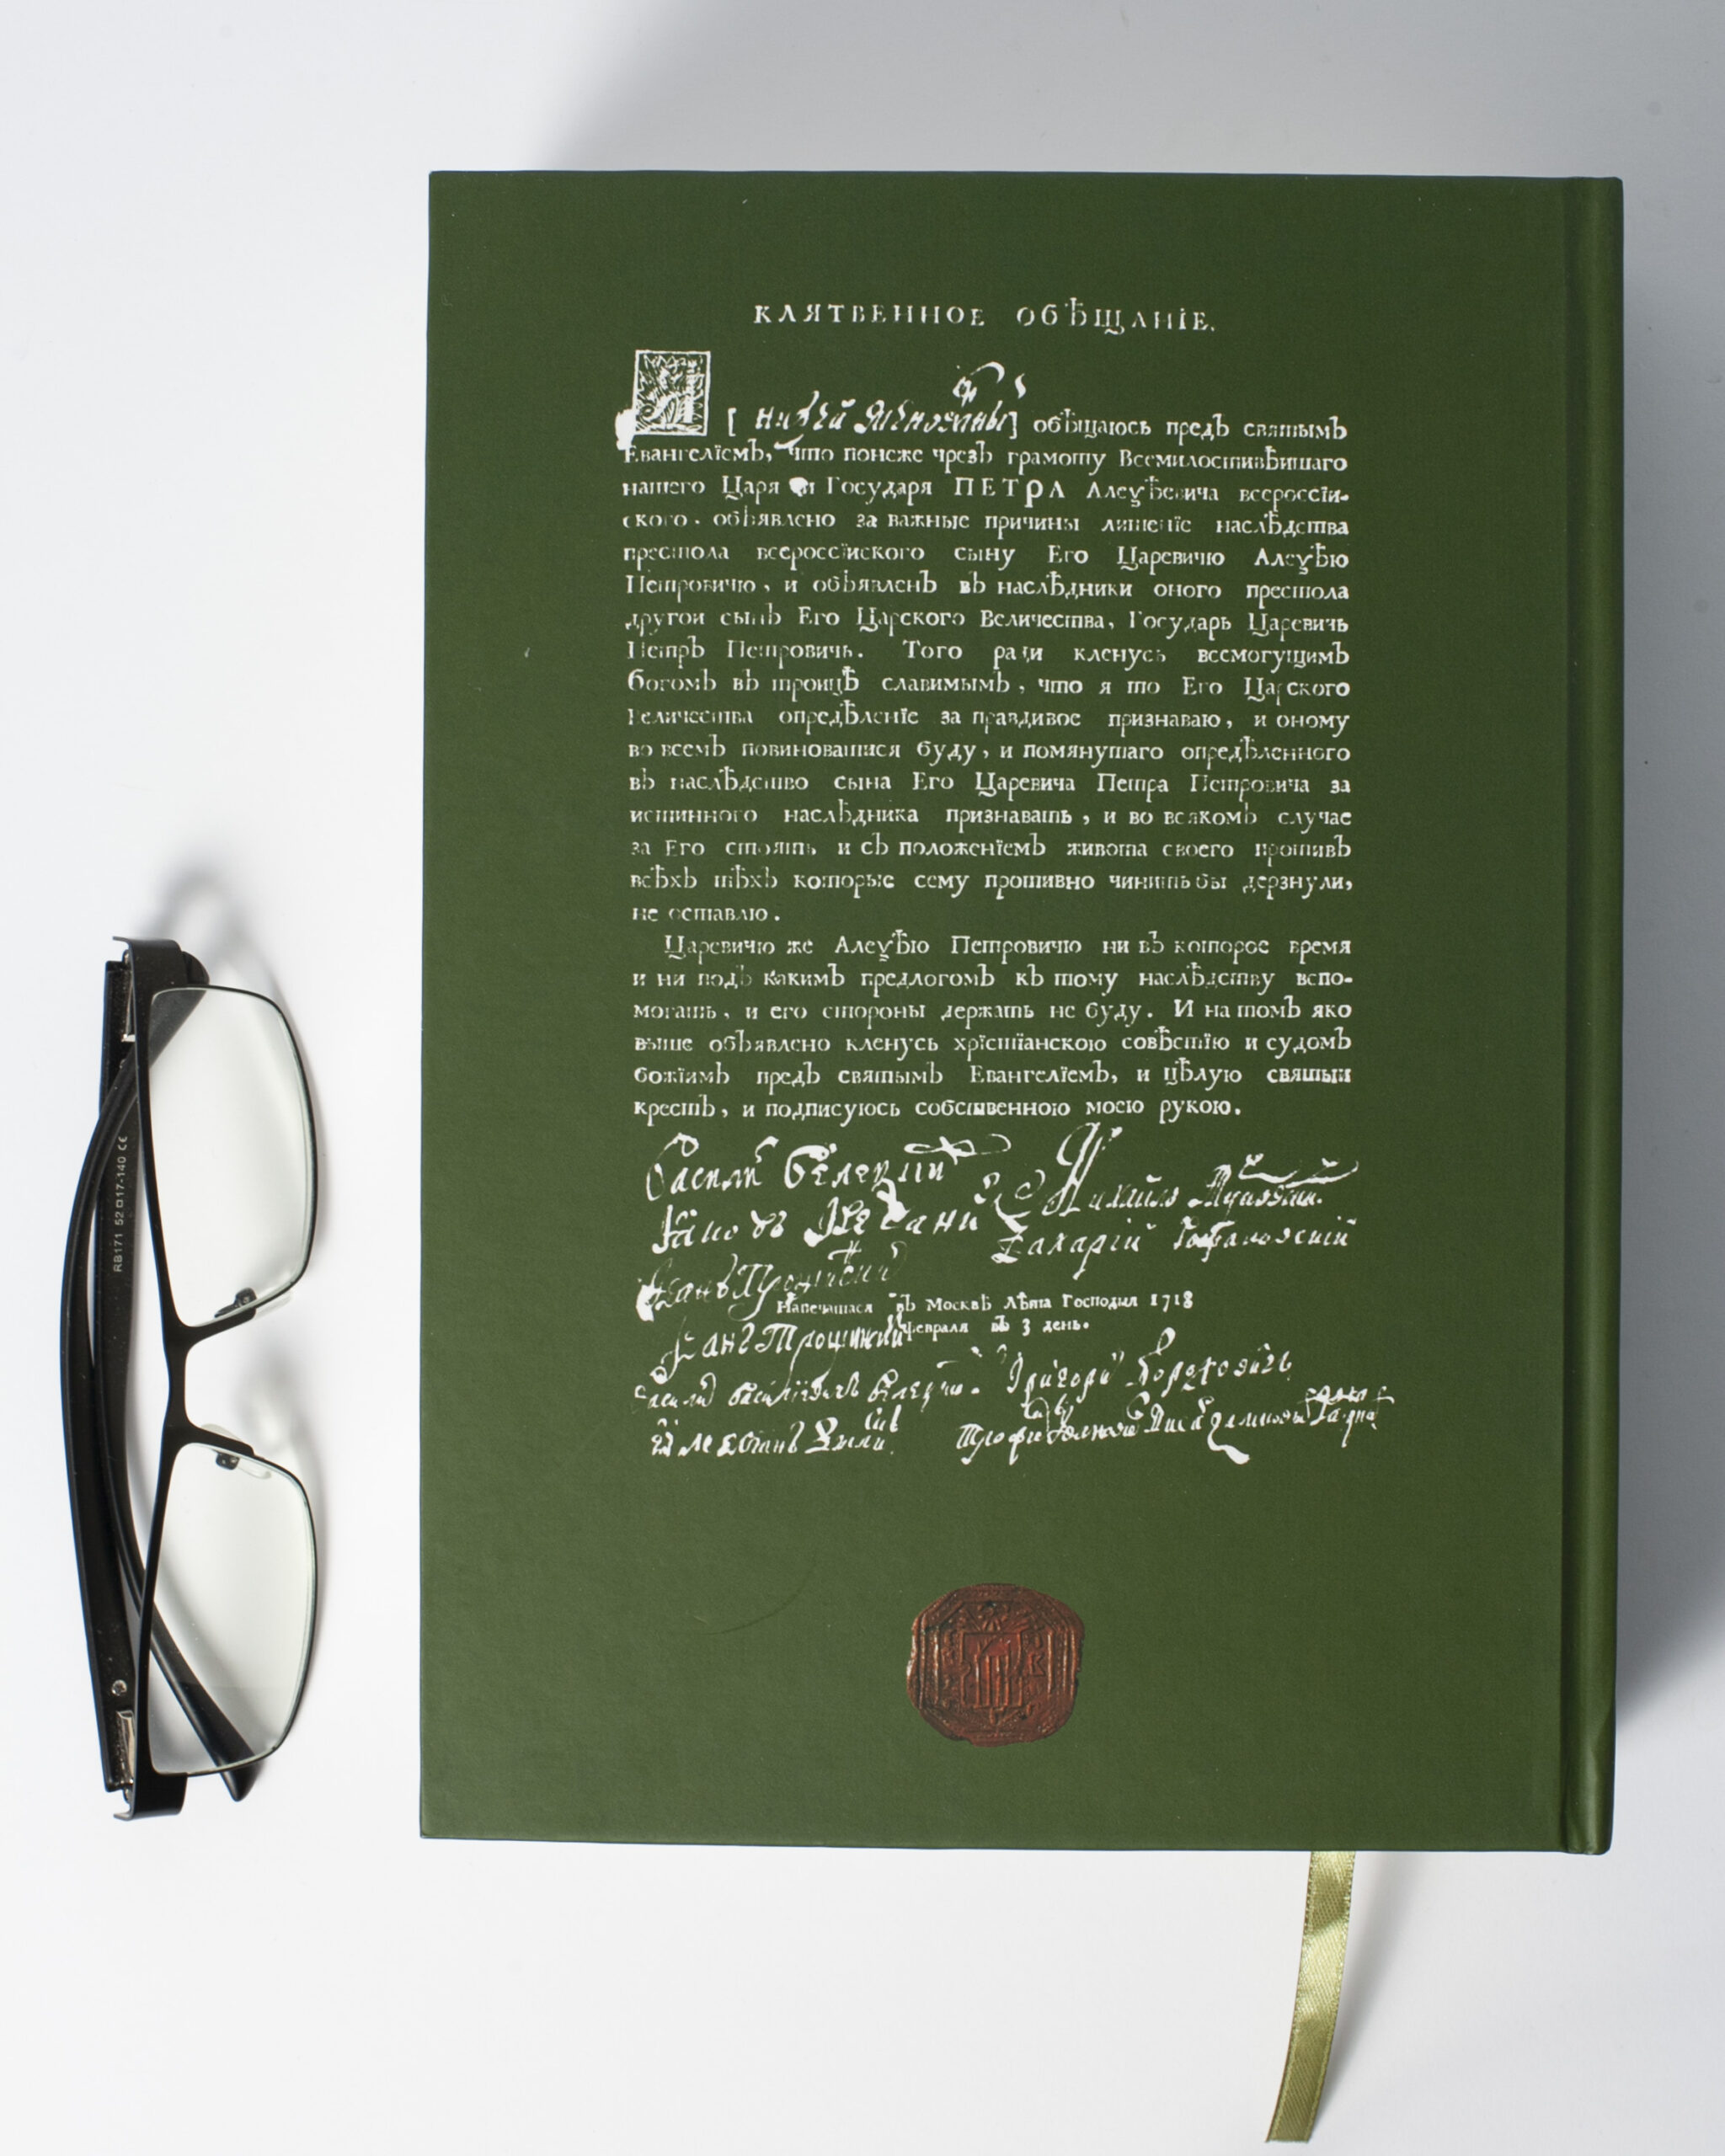 КЛЯТВЕННОЕ ОБѢЩАНІЕ.
Я [ обѣщаюсь предъ святымъ
Евангелїемъ, что понеже чрезъ грамоту Всемилостивѣишаго
нашего Царя и Государя ПЕТРА Алеѯѣевича всероссїи-
ского. объявлено за важные причины лишенїе наслѣдства
престола всероссїиского сыну Его Царевичю Алеѯѣю
Петровичю, и объявленъ въ наслѣдники оного престола
другои сынъ Его Царского Величества, Государь Царевичь
Петръ Петровичь. Того ради кленусь всемогущимъ
богомъ въ троицѣ славимымъ, что я то Его Царского
Величества опредѣленїе за правдивое признаваю, и оному
во всемъ повиноватися буду, и помянутаго опредѣленного
въ наслѣдство сына Его Царевича Петра Петровича за
истинного наслѣдника признавать, и во всякомъ случае
за Его стоять и съ положенїемъ живота своего противъ
всѣхъ тѣхъ которые сему противно чинить бы дерзнули,
не оставлю.
Царевичю же Алеѯѣю Петровичю ни въ которое время
и ни подъ какимъ предлогомъ къ тому наслѣдству вспо-
могать, и его стороны держать не буду. И на томъ яко
выше объявлено кленусь хрїстїанскою совѣстїю и судомъ
божїимъ предъ святымъ Евангелїемъ, и цѣлую святыи
крестъ, и подписуюсь собственною моею рукою.
Михайло
Захарїй
Напечатася въ Москвѣ Лѣта Господня 1718
Февраля въ 3 день.
Трощинский
Григори
RB171 52□17-140 CE